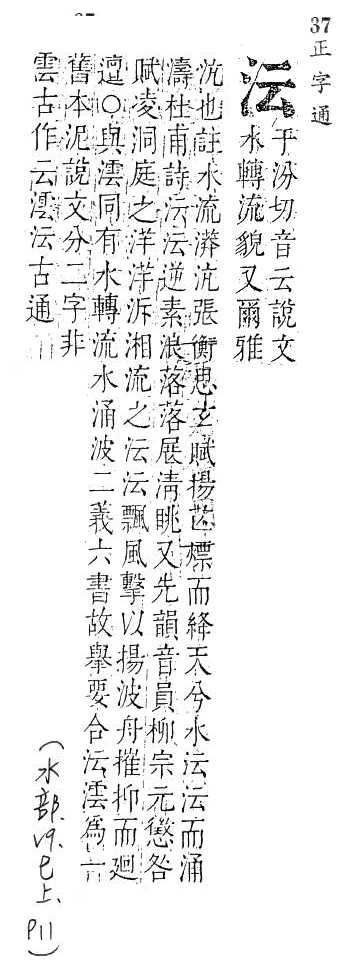 37 正字通
沄 于汾切音云說文
水轉流貌又爾雅
沆也註水流漭沆張衡思玄賦揚芒標而絳天兮水沄沄而涌
濤杜甫詩沄沄逆素浪落落展清眺又先韻音員柳宗元懲咎
賦凌洞庭之洋洋泝湘流之沄沄飄風擊以揚波舟摧抑而廻
邅〇與澐同有水轉流水涌波二義六書故舉要合沄澐爲一
舊本泥說文分二字非
雲古作云澐沄古通
(水部. 巳上. P11)